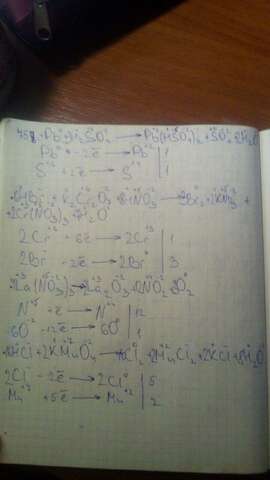 Pb + 3H₂SO₄ → Pb(HSO₄)₂ + SO₂ + 2H₂O
Pb⁰ - 2ē → Pb⁺² | 1
S⁺⁶ + 2ē → S⁺⁴ | 1
HBr + K₂Cr₂O₇ + HNO₃ → Br₂ + 2KNO₃ +
+ 2Cr(NO₃)₃ + H₂O
2Cr⁺⁶ + 6ē → 2Cr⁺³ | 1
2Br⁻ - 2ē → 2Br⁰ | 3
La(NO₃)₃ → 2La₂O₃ + 12NO₂ + 3O₂
N⁺⁵ + ē → N⁺⁴ | 12
6O⁻² - 12ē → 6O⁰ | 1
HCl + 2KMnO₄ → Cl₂ + 2MnCl₂ + 2KCl + 8H₂O
2Cl⁻ - 2ē → 2Cl⁰ | 5
Mn⁺⁷ + 5ē → Mn⁺² | 2